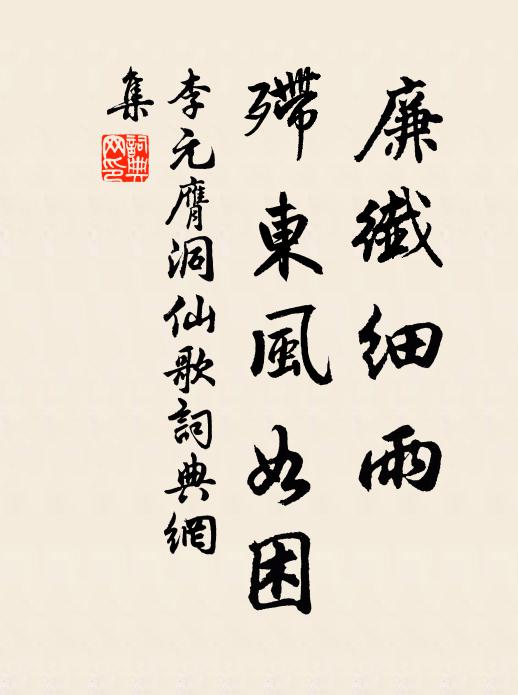 廉纖細雨
殢東風如困
李元膺洞仙歌詞典網
集
詞典網印